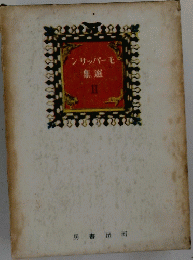 モーパッサン
選
集
II
書房